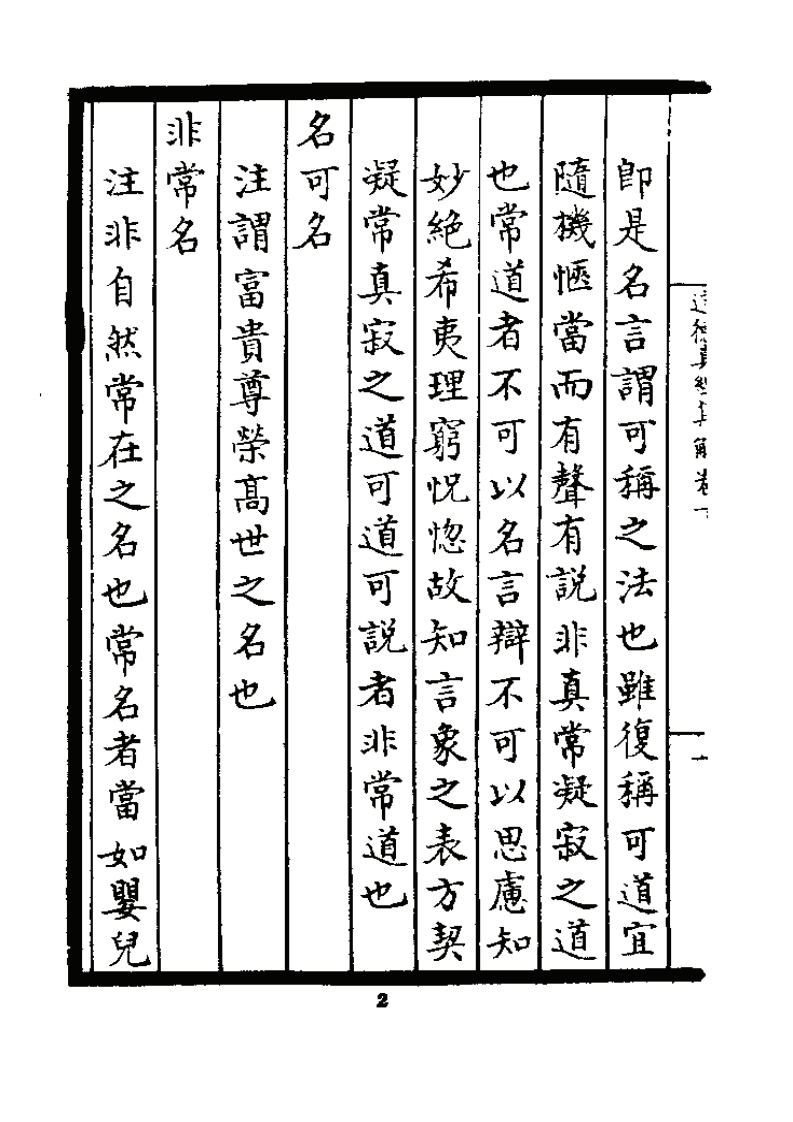 道德真經集解卷一
即是名言謂可稱之法也雖復稱可道宜
隨機愜當而有聲有説非真常凝寂之道
也常道者不可以名言辯不可以思慮知
妙絶希夷理窮怳惚故知言象之表方契
凝常真寂之道可道可説者非常道也
名可名
注謂富貴尊榮髙世之名也
非常名
注非自然常在之名也常名者當如嬰兒
2